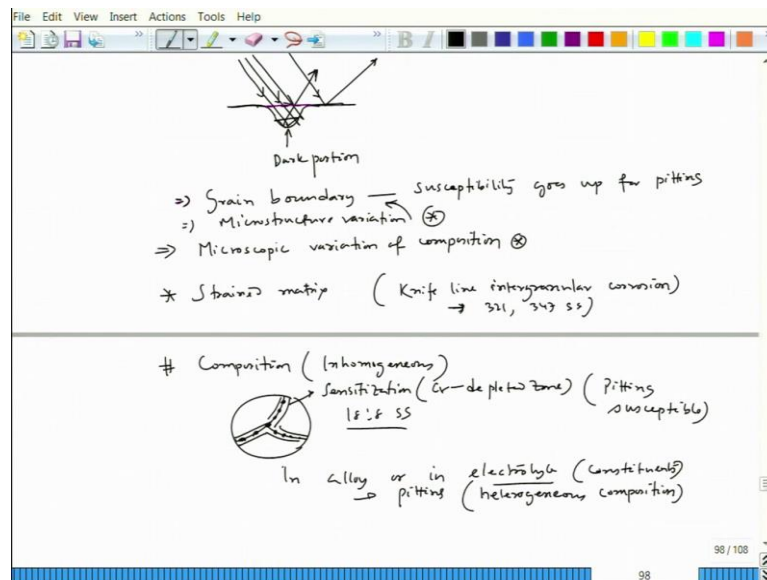 File Edit View Insert Actions Tools Help
B I
Dark portion
=> Grain boundary — susceptibility goes up for pitting
=> Microstructure variation *
=> Microscopic variation of composition *
* Strained matrix (Knife line intergranular corrosion)
→ 321, 347 SS)
# Composition (Inhomogeneous)
Sensitization (Cr-depleted zone) (Pitting
18:8 SS susceptible)
In alloy or in electrolyte (constituents)
→ pitting (heterogeneous composition)
98 / 108
98